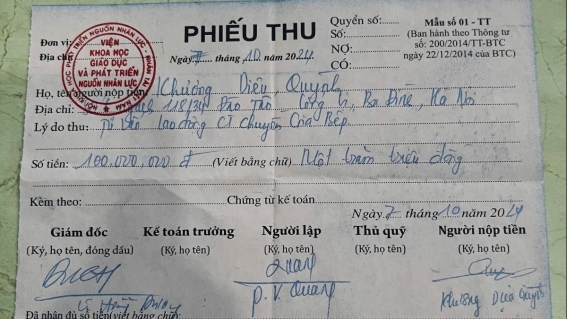 PHIẾU THU
Quyển số:
Số:
NỢ:
CÓ:
Mẫu số 01 - TT
(Ban hành theo Thông tư
số: 200/2014/TT-BTC
ngày 22/12/2014 của BTC)
Đơn vị
Địa chỉ
VIỆN
KHOA HỌC
GIÁO DỤC
VÀ PHÁT TRIỂN
NGUỒN NHÂN LỰC
Ngày 7 tháng 10 năm 2024
Họ, tên người nộp tiền: Khương Diệu Quỳnh
Địa chỉ: 118/34 Đào Tấn, Cống Vị, Ba Đình, Hà Nội
Lý do thu: Tư vấn lao động CT chuyên Bếp
Số tiền: 100.000.000 đ (Viết bằng chữ) Một trăm triệu đồng
Kèm theo: Chứng từ kế toán
Ngày 7 tháng 10 năm 2024
Giám đốc Kế toán trưởng Người lập Thủ quỹ Người nộp tiền
(Ký, họ tên, đóng dấu) (Ký, họ tên) (Ký, họ tên) (Ký, họ tên) (Ký, họ tên)
P. V. Quang Khương Diệu Quỳnh
Đã nhận đủ số tiền (viết bằng chữ):